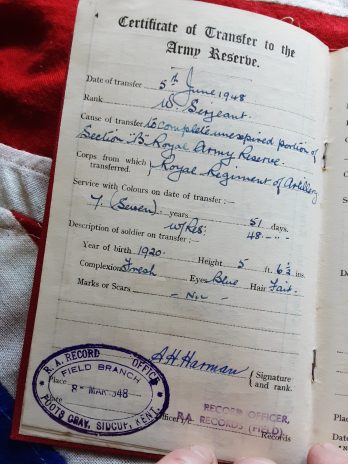 Certificate of Transfer to the
Army Reserve.
Date of transfer 5th June 1948
Rank W/Sergeant
Cause of transfer to complete unexpired portion of
Section "B" Royal Army Reserve.
Corps from which transferred, } Royal Regiment of Artillery
Service with Colours on date of transfer:—
7 (Seven) years 51 days.
W/Res: 48 -"-
Description of soldier on transfer:—
Year of birth 1920. Height 5 ft. 6½ ins.
Complexion Fresh Eyes Blue Hair Fair.
Marks or Scars — Nil —
A H Harman } Signature and rank.
R. A. RECORD OFFICE
FIELD BRANCH
Place
8 MAR 948
FOOTS CRAY, SIDCUP, KENT.
RECORD OFFICER,
R.A. RECORDS (FIELD)
Officer i/c Records